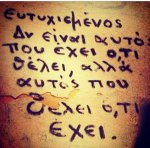 ευτυχισμένος
Δν είναι αυτός
που έχει ό,τι
θέλει, αλλά
αυτός που
θέλει ό,τι
έχει.